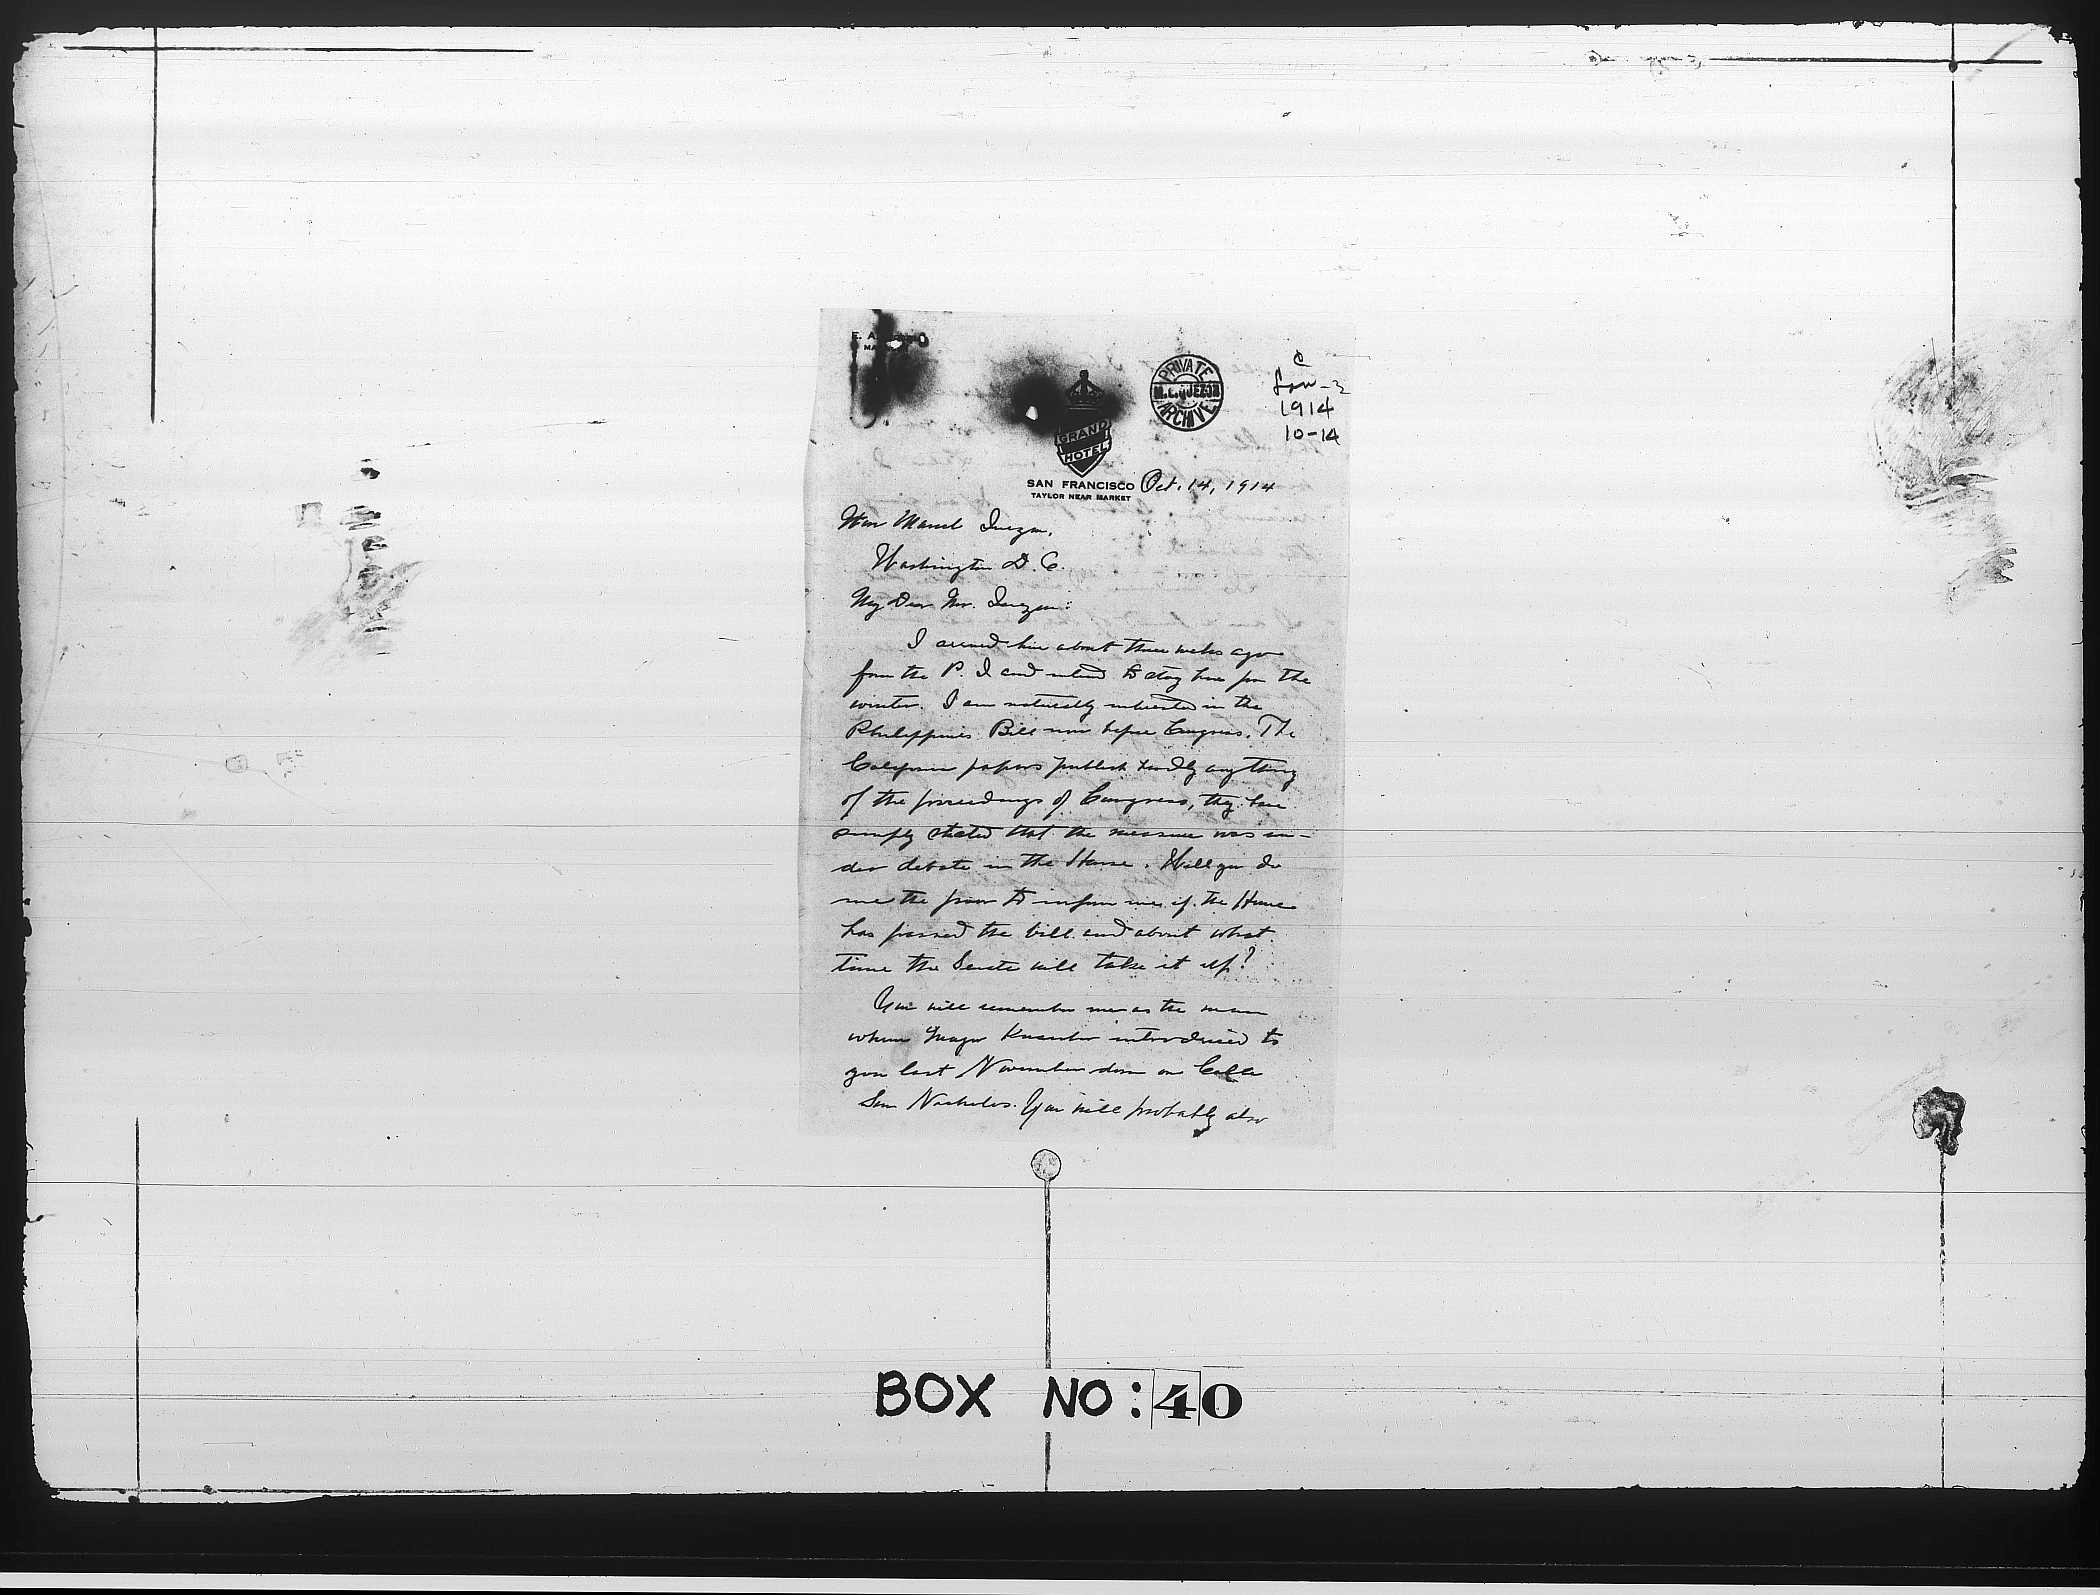 PRIVATE
M.L. QUEZON
ARCHIVE
1914
10-14
GRAND
HOTEL
SAN FRANCISCO Oct. 14, 1914
TAYLOR NEAR MARKET
Hon Manuel Quezon,
Washington D. C.
My Dear Mr. Quezon:
I arrived here about three weeks ago
from the P. I and intend to stay here for the
winter. I am naturally interested in the
Philippines Bill now before Congress. The
California papers publish hardly anything
of the proceedings of Congress, they have
simply stated that the measure was un-
der debate in the House. Will you do
me the favor to inform me if the House
has passed the bill and about what
time the Senate will take it up?
You will remember me as the man
whom Major introduced to
you last November down on Calle
San Nicholas. You will probably also
BOX NO: 40